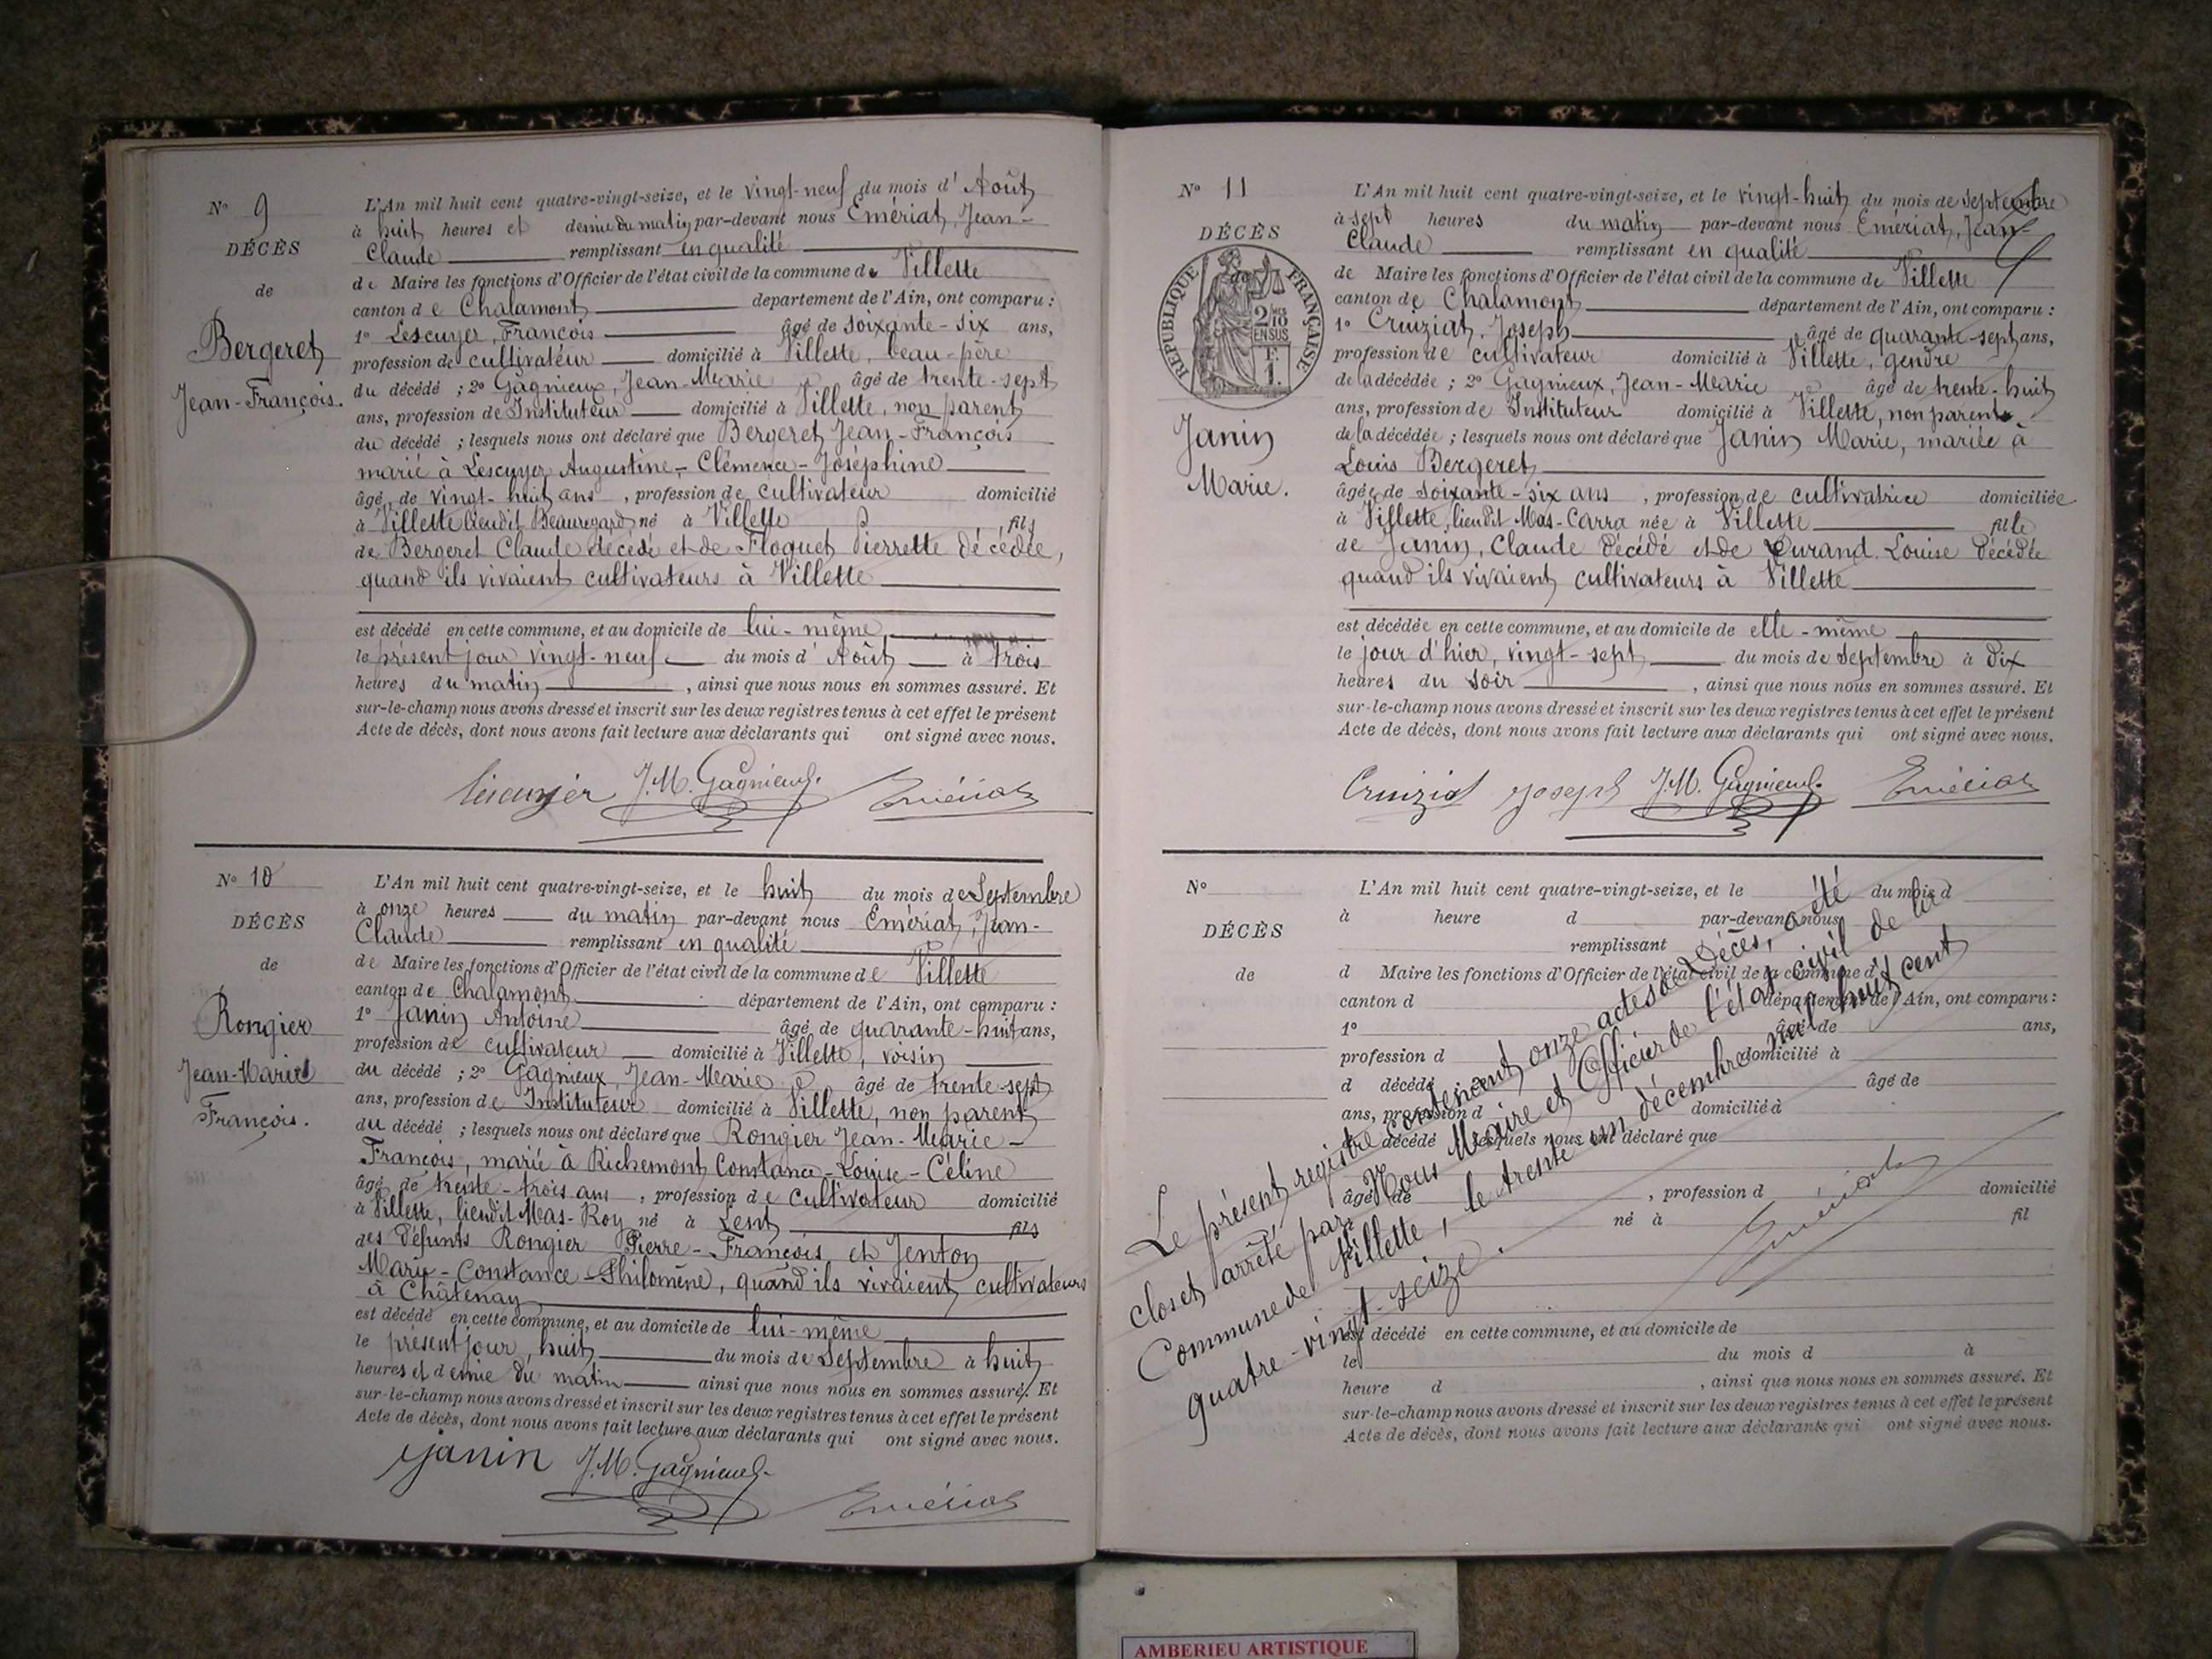 N° 9
DÉCÈS
de
Bergeret
Jean-François.
L'An mil huit cent quatre-vingt-seize, et le vingt-neuf du mois d'Août
à huit heures et demie du matin par-devant nous Emériat, Jean-
Claude remplissant en qualité
de Maire les fonctions d'Officier de l'état civil de la commune de Villette
canton de Chalamont département de l'Ain, ont comparu :
1° Lescuyer, François âgé de soixante-six ans,
profession de cultivateur domicilié à Villette, beau-père
du décédé ; 2° Gagnieux, Jean-Marie âgé de trente-sept
ans, profession de Instituteur domicilié à Villette, non parent
du décédé ; lesquels nous ont déclaré que Bergeret Jean-François
marié à Lescuyer Augustine-Clémence-Joséphine
âgé de vingt-huit ans, profession de cultivateur domicilié
à Villette lieudit Beauregard né à Villette fils
de Bergeret Claude décédé et de Floquet Pierrette décédée,
quand ils vivaient cultivateurs à Villette
est décédé en cette commune, et au domicile de lui-même
le présent jour vingt-neuf du mois d'Août à trois
heures du matin, ainsi que nous nous en sommes assuré. Et
sur-le-champ nous avons dressé et inscrit sur les deux registres tenus à cet effet le présent
Acte de décès, dont nous avons fait lecture aux déclarants qui ont signé avec nous.
Lescuyer J.M. Gagnieux. Emériat
N° 10
DÉCÈS
de
Rongier
Jean-Marie
François.
L'An mil huit cent quatre-vingt-seize, et le huit du mois de Septembre
à onze heures du matin par-devant nous Emériat, Jean-
Claude remplissant en qualité
de Maire les fonctions d'Officier de l'état civil de la commune de Villette
canton de Chalamont département de l'Ain, ont comparu :
1° Janin Antoine âgé de quarante-huit ans,
profession de cultivateur domicilié à Villette, voisin
du décédé ; 2° Gagnieux, Jean-Marie âgé de trente-sept
ans, profession de Instituteur domicilié à Villette, non parent
du décédé ; lesquels nous ont déclaré que Rongier Jean-Marie-
François, marié à Richemont Constance-Louise-Céline
âgé de trente-trois ans, profession de cultivateur domicilié
à Villette, lieudit Mas-Roy né à Lent fils
des défunts Rongier Pierre-François et Jenton
Marie-Constance-Philomène, quand ils vivaient cultivateurs
à Châtenay
est décédé en cette commune, et au domicile de lui-même
le présent jour, huit du mois de Septembre à huit
heures et demie du matin ainsi que nous nous en sommes assuré. Et
sur-le-champ nous avons dressé et inscrit sur les deux registres tenus à cet effet le présent
Acte de décès, dont nous avons fait lecture aux déclarants qui ont signé avec nous.
Janin J.M. Gagnieux. Emériat
N° 11
DÉCÈS
de
RÉPUBLIQUE FRANÇAISE
2/10 EN SUS
1 F.
Janin
Marie.
L'An mil huit cent quatre-vingt-seize, et le vingt-huit du mois de Septembre
à sept heures du matin par-devant nous Emériat, Jean-
Claude remplissant en qualité
de Maire les fonctions d'Officier de l'état civil de la commune de Villette
canton de Chalamont département de l'Ain, ont comparu :
1° Cruiziat, Joseph âgé de quarante-sept ans,
profession de cultivateur domicilié à Villette, gendre
de la décédée ; 2° Gagnieux, Jean-Marie âgé de trente-huit
ans, profession de Instituteur domicilié à Villette, non parent
de la décédée ; lesquels nous ont déclaré que Janin Marie, mariée à
Louis Bergeret
âgée de soixante-six ans, profession de cultivatrice domiciliée
à Villette, lieudit Mas-Carra née à Villette fille
de Janin, Claude décédé et de Durand Louise décédée
quand ils vivaient cultivateurs à Villette
est décédée en cette commune, et au domicile de elle-même
le jour d'hier, vingt-sept du mois de Septembre à dix
heures du soir, ainsi que nous nous en sommes assuré. Et
sur-le-champ nous avons dressé et inscrit sur les deux registres tenus à cet effet le présent
Acte de décès, dont nous avons fait lecture aux déclarants qui ont signé avec nous.
Cruiziat Joseph J.M. Gagnieux. Emériat
N°
DÉCÈS
de
L'An mil huit cent quatre-vingt-seize, et le du mois d
à heure d par-devant nous
remplissant
d Maire les fonctions d'Officier de l'état civil de la commune d
canton d département de l'Ain, ont comparu :
1° âgé de ans,
profession d domicilié à
d décédé âgé de
ans, profession d domicilié à
d décédé lesquels nous ont déclaré que
âgé de , profession d domicilié
né à fil
est décédé en cette commune, et au domicile de
le du mois d à
heure d , ainsi que nous nous en sommes assuré. Et
sur-le-champ nous avons dressé et inscrit sur les deux registres tenus à cet effet le présent
Acte de décès, dont nous avons fait lecture aux déclarants qui ont signé avec nous.
Le présent registre contenant onze actes de Décès, a été
clos et arrêté par Nous Maire et Officier de l'état civil de la
Commune de Villette, le trente un décembre mil huit cent
quatre-vingt-seize.
Emériat
AMBERIEU ARTISTIQUE